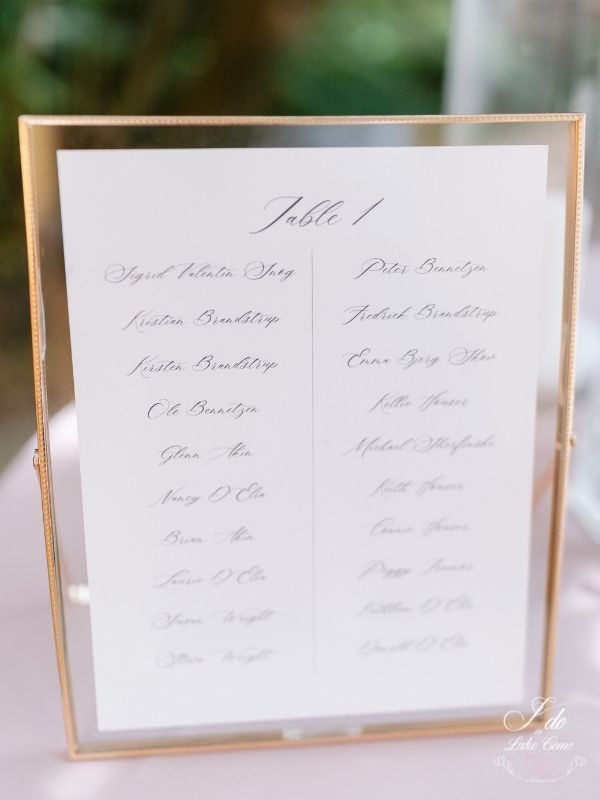 Table 1
Sigrid Valentin Snog
Kristian Brandstrup
Kirsten Brandstrup
Ole Bennetzen
Glenn Akin
Nancy D'Elia
Brian Akin
Laurie D'Elia
Susan Wright
Steve Wright
Peter Bennetzen
Fredrick Brandstrup
Emma Bjerg Skov
Kellie Hauser
Michael
Keith Hauser
Connie Hauser
Peggy
Kathleen D'Elia
D'Elia
I do
in
Lake Como